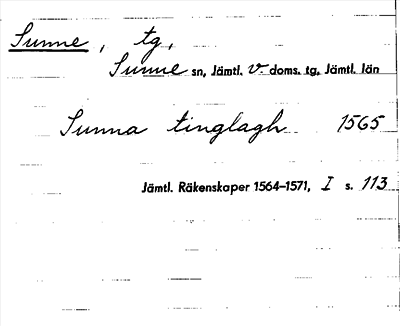 Sunne, tg,
Sunne sn, Jämtl. v. doms. tg, Jämtl. län
Sunna tinglagh 1565
Jämtl. Räkenskaper 1564–1571, I s. 113